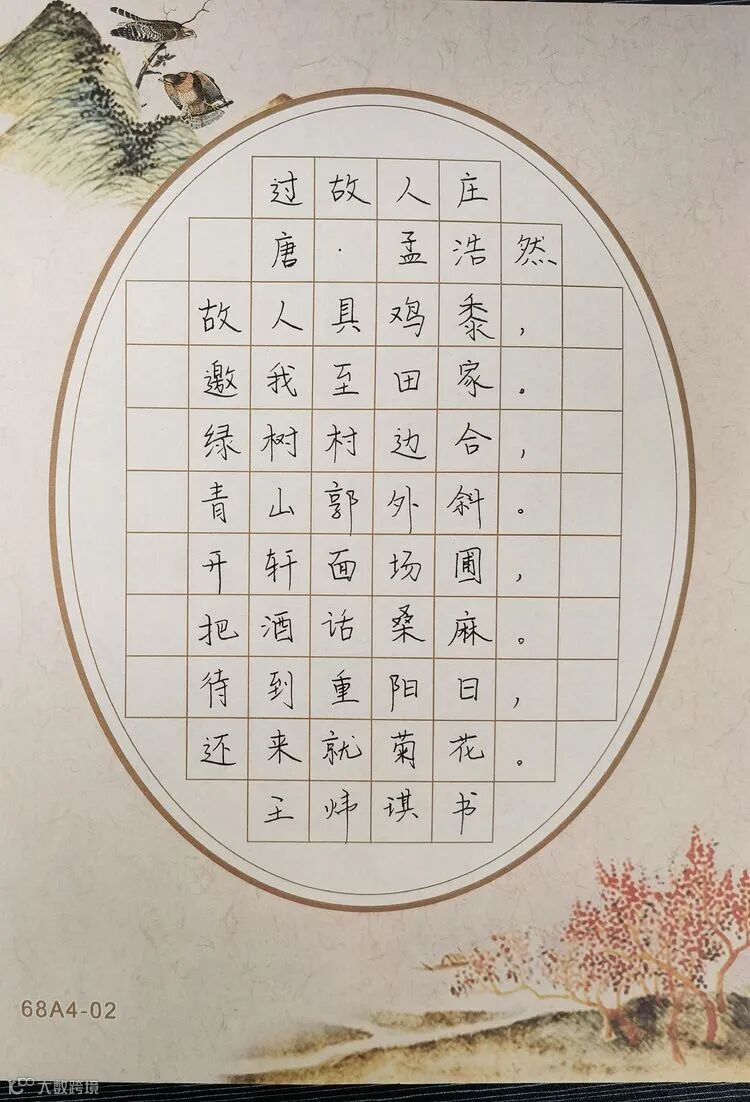 过故人庄
唐·孟浩然
故人具鸡黍，
邀我至田家。
绿树村边合，
青山郭外斜。
开轩面场圃，
把酒话桑麻。
待到重阳日，
还来就菊花。
王炜琪书
68A4-02
大数跨境